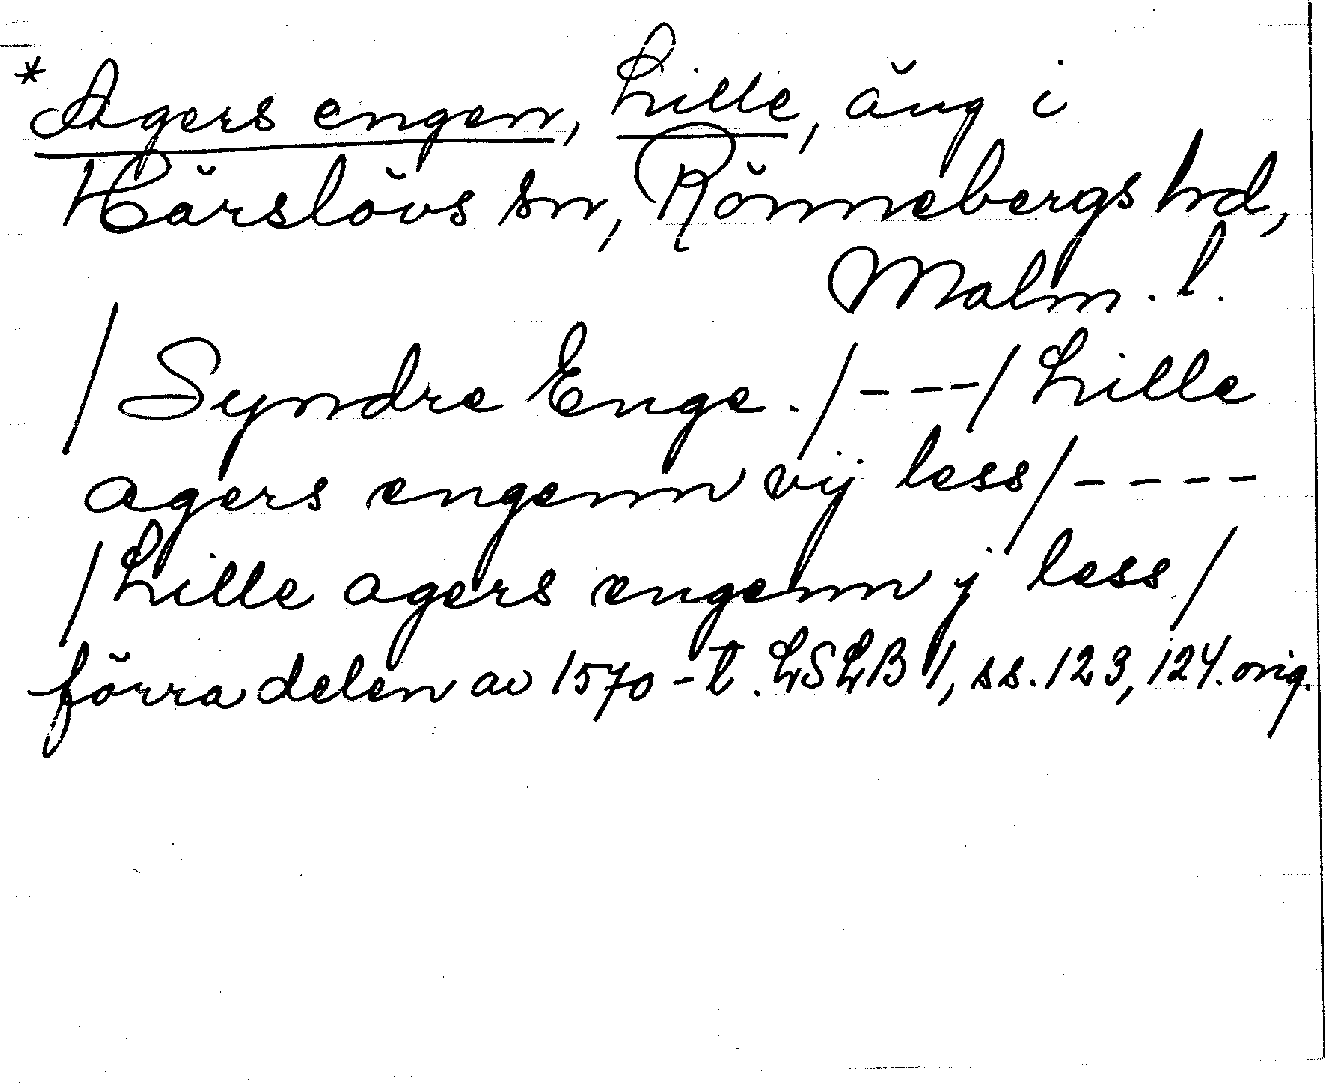 *Agers engen, Lille, äng i
Härslövs sn, Rönnebergs hd,
Malm. l.
/ Syndre Enge. / - - - / Lille
agers engenn vij less / - - - -
/ Lille agers engenn j less /
förra delen av 1570-t. LSLB 1, ss. 123, 124. orig.